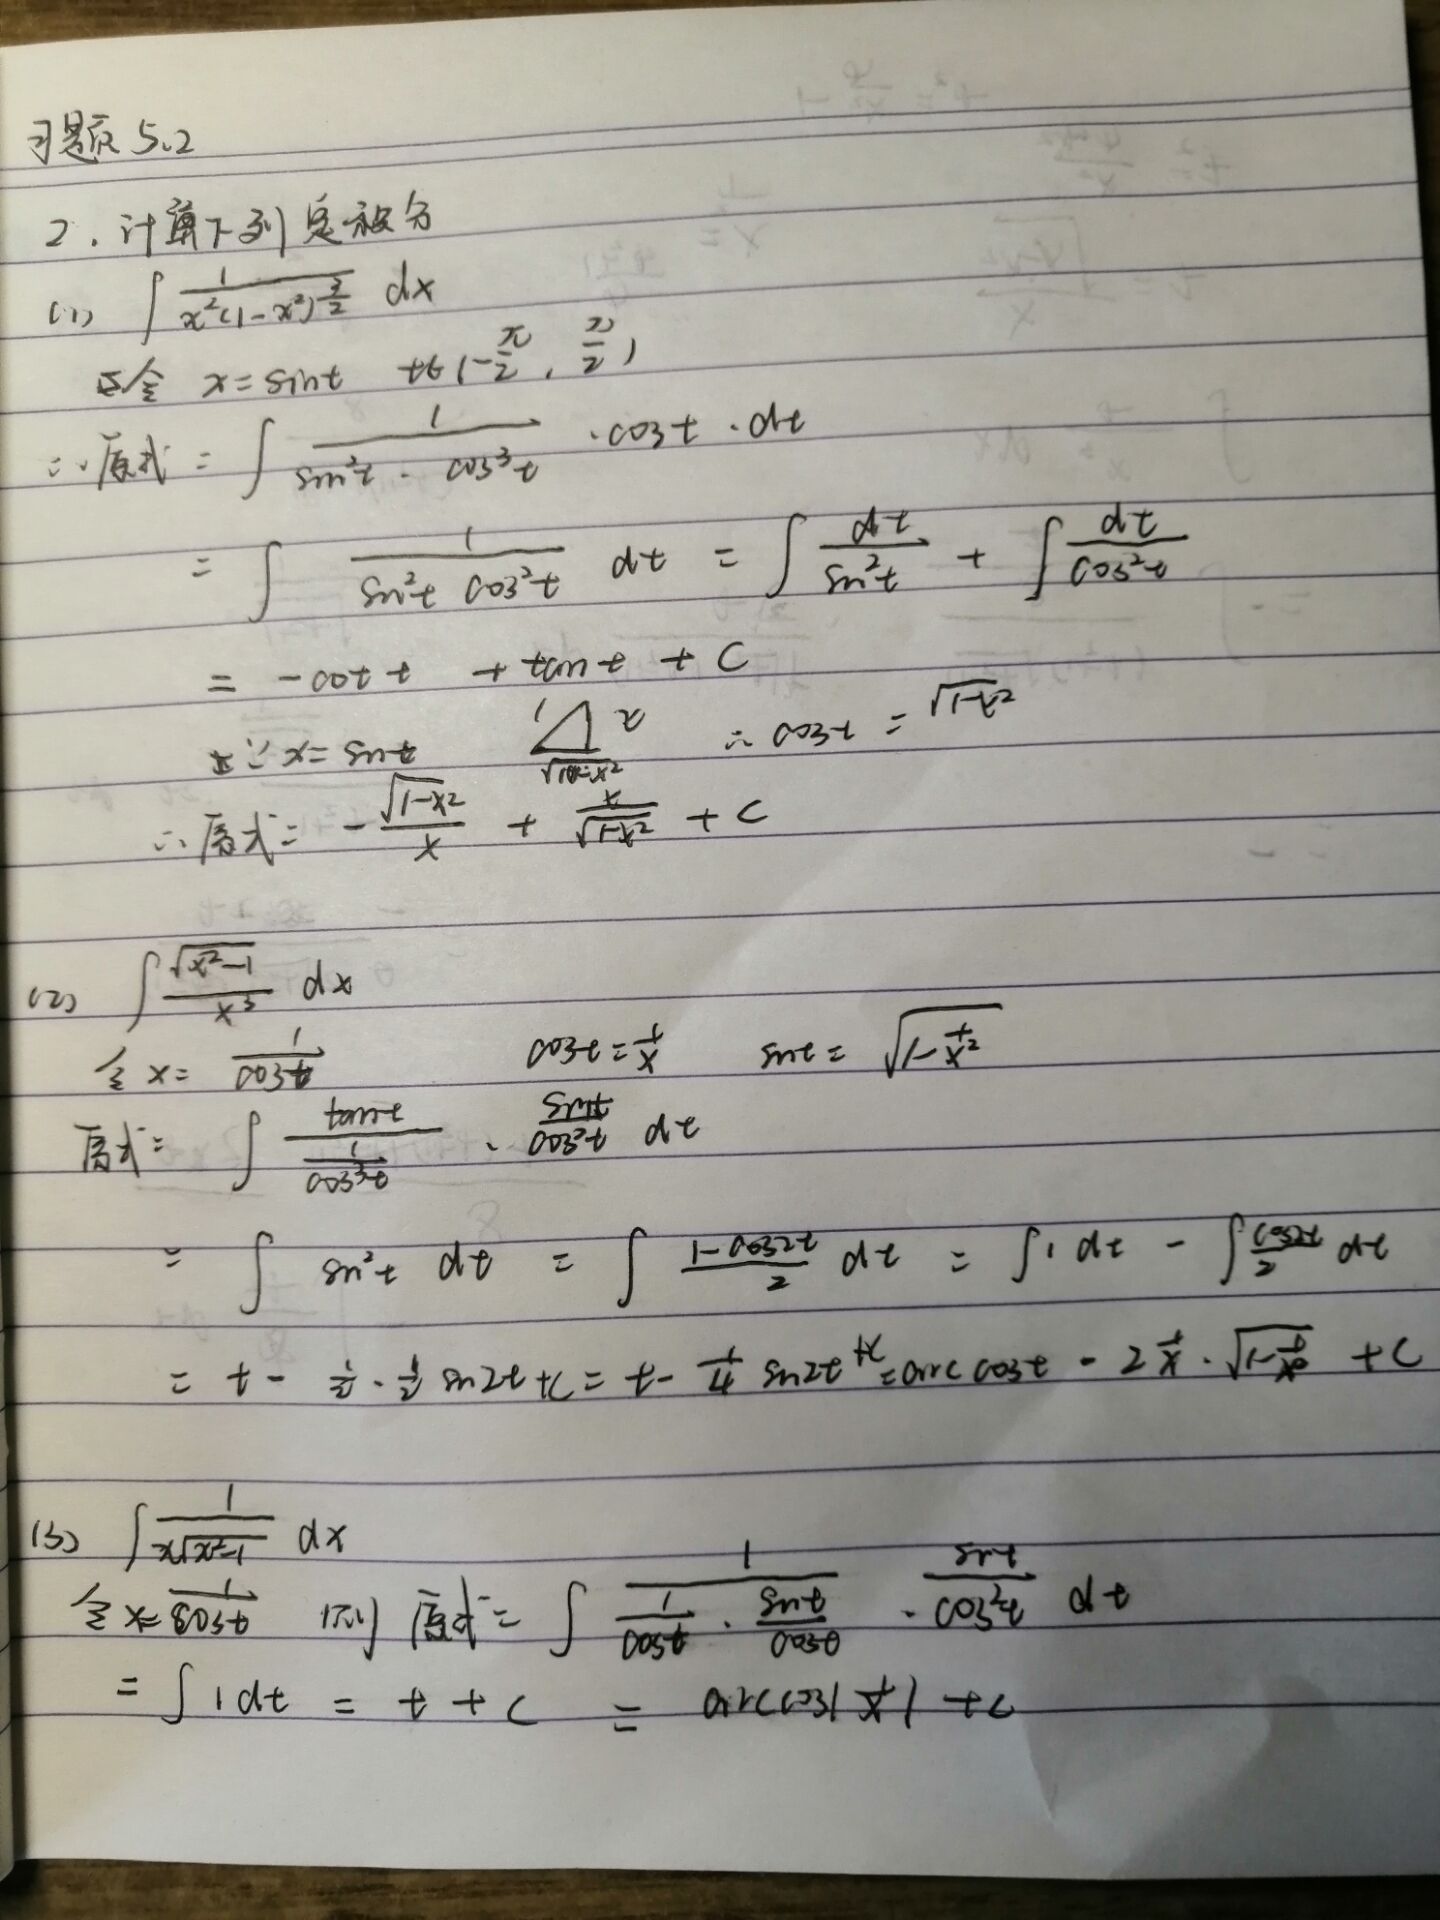 习题 5.2
2. 计算下列定积分
(1) ∫ 1/(x²(1-x²)^(3/2)) dx
令 x = sint t∈(-π/2, π/2)
∴ 原式 = ∫ 1/(sin²t · cos³t) · cost · dt
= ∫ 1/(sin²t cos²t) dt = ∫ dt/sin²t + ∫ dt/cos²t
= -cot t + tan t + C
∵ x = sint 1 x √(1-x²) ∴ cost = √(1-x²)
∴ 原式 = -√(1-x²)/x + x/√(1-x²) + C
(2) ∫ √(x²-1)/x³ dx
令 x = 1/cost cost = 1/x sint = √(1-1/x²)
原式 = ∫ tant/(1/cos³t) · sint/cos²t dt
= ∫ sin²t dt = ∫ (1-cos2t)/2 dt = ∫ 1 dt - ∫ cos2t/2 dt
= t - 1/2 · 1/2 sin2t + C = t - 1/4 sin2t + C = arccost - 2 1/x · √(1-1/x²) + C
(3) ∫ 1/(x√(x²-1)) dx
令 x = 1/cost 则 原式 = ∫ 1/(1/cost · sint/cosθ) · sint/cos²t dt
= ∫ 1 dt = t + C = arccos|1/x| + C